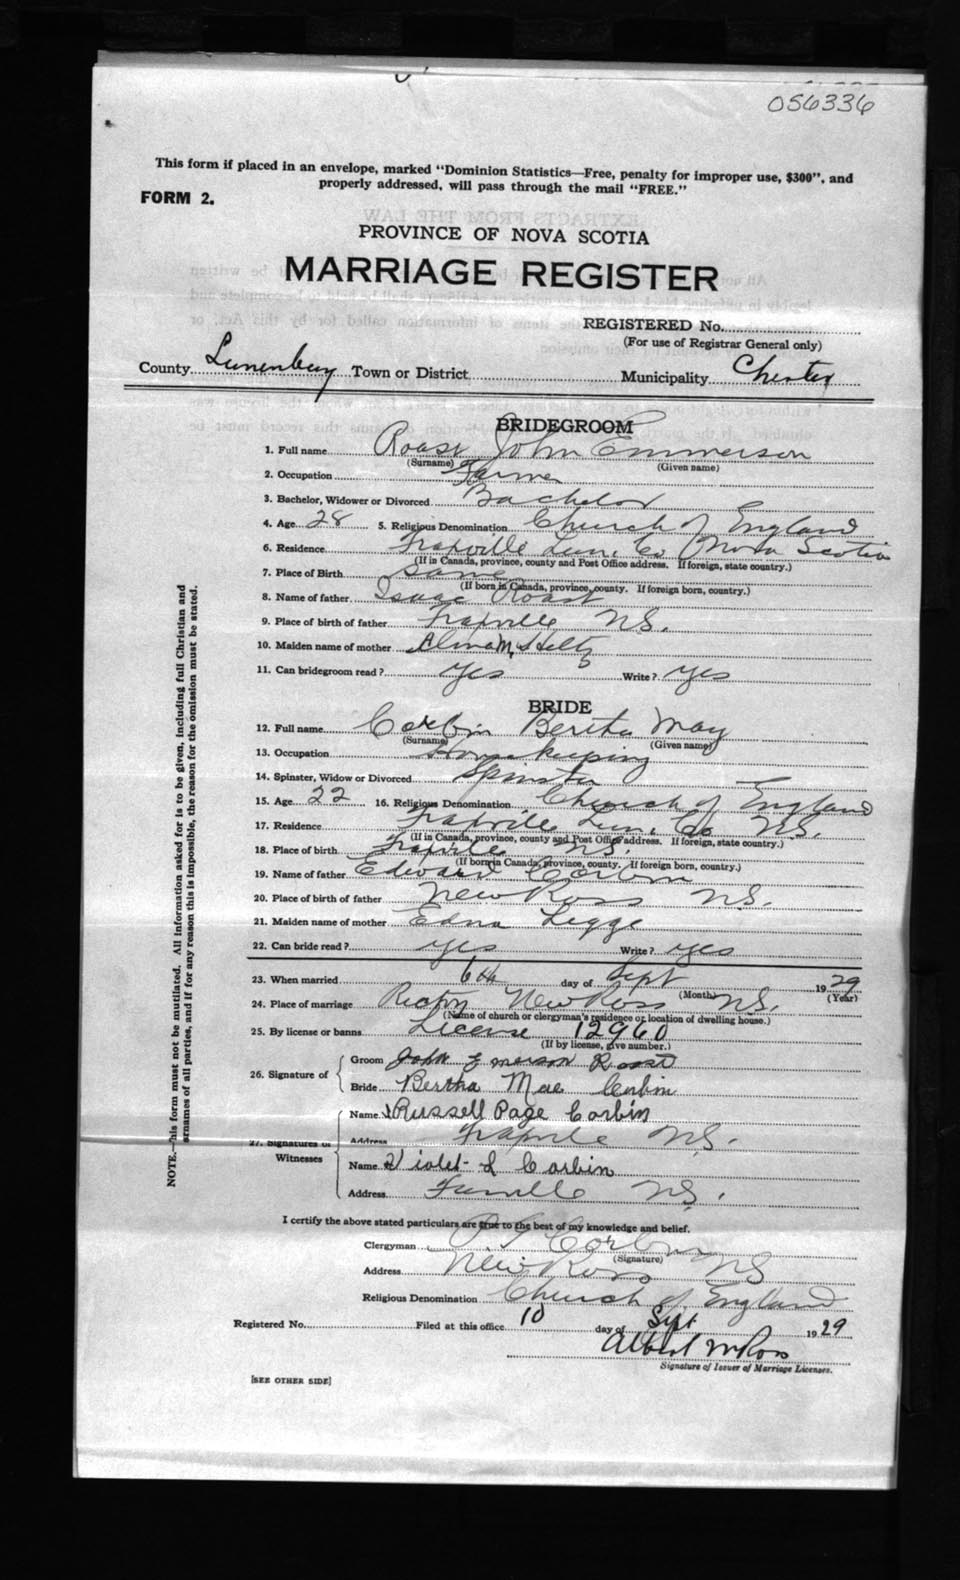 056336
This form if placed in an envelope, marked "Dominion Statistics—Free, penalty for improper use, $300", and
properly addressed, will pass through the mail "FREE."
FORM 2.
PROVINCE OF NOVA SCOTIA
MARRIAGE REGISTER
REGISTERED No.
(For use of Registrar General only)
County Lunenburg Town or District Municipality Chester
BRIDEGROOM
1. Full name Roast John Emmerson
(Surname) (Given name)
2. Occupation Farmer
3. Bachelor, Widower or Divorced Bachelor
4. Age 28 5. Religious Denomination Church of England
6. Residence Fraxville Lun. Co Nova Scotia
(If in Canada, province, county and Post Office address. If foreign, state country.)
7. Place of Birth same
(If born in Canada, province, county. If foreign born, country.)
8. Name of father Isaac Roast
9. Place of birth of father Fraxville N.S.
10. Maiden name of mother M. Hiltz
11. Can bridegroom read? yes Write? yes
BRIDE
12. Full name Corbin Bertha May
(Surname) (Given name)
13. Occupation Housekeeping
14. Spinster, Widow or Divorced Spinster
15. Age 22 16. Religious Denomination Church of England
17. Residence Fraxville Lun. Co N.S.
(If in Canada, province, county and Post Office address. If foreign, state country.)
18. Place of birth Fraxville N.S.
(If born in Canada, province, county. If foreign born, country.)
19. Name of father Edward Corbin
20. Place of birth of father New Ross N.S.
21. Maiden name of mother Edna Legge
22. Can bride read? yes Write? yes
23. When married 6th day of Sept 1929
(Month) (Year)
24. Place of marriage Rectory New Ross N.S.
(Name of church or clergyman's residence or location of dwelling house.)
25. By license or banns License 12960
(If by license, give number.)
26. Signature of
Groom John Emerson Roast
Bride Bertha Mae Corbin
27. Signatures of Witnesses
Name Russell Page Corbin
Address Fraxville N.S.
Name Violet L Corbin
Address N.S.
I certify the above stated particulars are true to the best of my knowledge and belief.
Clergyman Corbin
(Signature)
Address New Ross NS
Religious Denomination Church of England
Registered No. Filed at this office 10 day of Sept 1929
Albert M Ross
Signature of Issuer of Marriage Licenses.
[SEE OTHER SIDE]
NOTE.—This form must not be mutilated. All information asked for is to be given, including full Christian and
surnames of all parties, and if for any reason this is impossible, the reason for the omission must be stated.